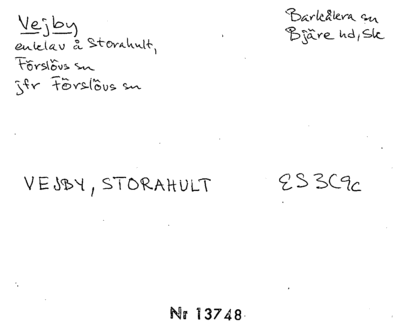 Vejby
enklav å Storahult,
Förslövs sn
jfr Förslövs sn
Barkåkra sn
Bjäre hd, Sk
VEJBY, STORAHULT
ES3C9c
Nr 13748